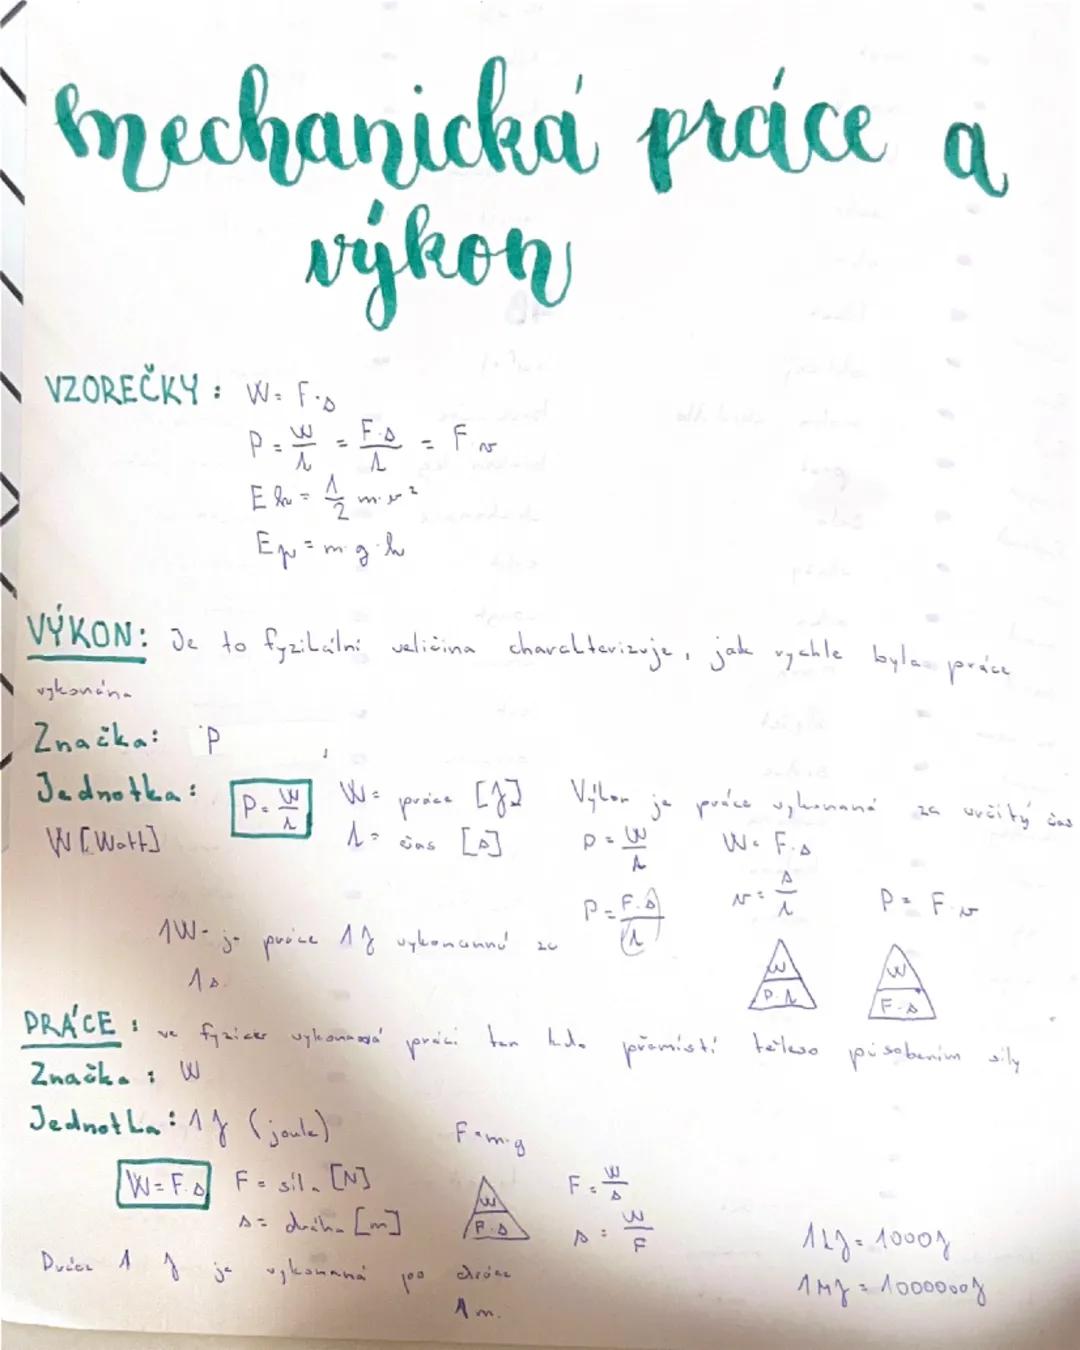 mechanická práce a
výkon
VZOREČKY: W = F·s
P = W/t = F·s/t = F·v
Ek = 1/2 m·v²
Ep = m·g·h
VÝKON: Je to fyzikální veličina charakterizuje, jak rychle byla práce
vykonána
Značka: P
Jednotka:
W [Watt]
P = W/t
W = práce [J]
t = čas [s]
Výkon je práce vykonaná za určitý čas
P = W/t W = F·s
P = F·s/t v = s/t P = F·v
1W - je práce 1J vykonanná za
1s.
W
P·t
W
F·s
PRÁCE: ve fyzice vykonává práci ten kdo přemístí těleso působením síly
Značka: W
Jednotka: 1J (joule)
F = m·g
W = F·s
F = síla [N]
s = dráha [m]
W
F·s
F = W/s
s = W/F
1kJ = 1000J
1MJ = 1000000J
Práce 1 J je vykonaná po dráze
1 m.